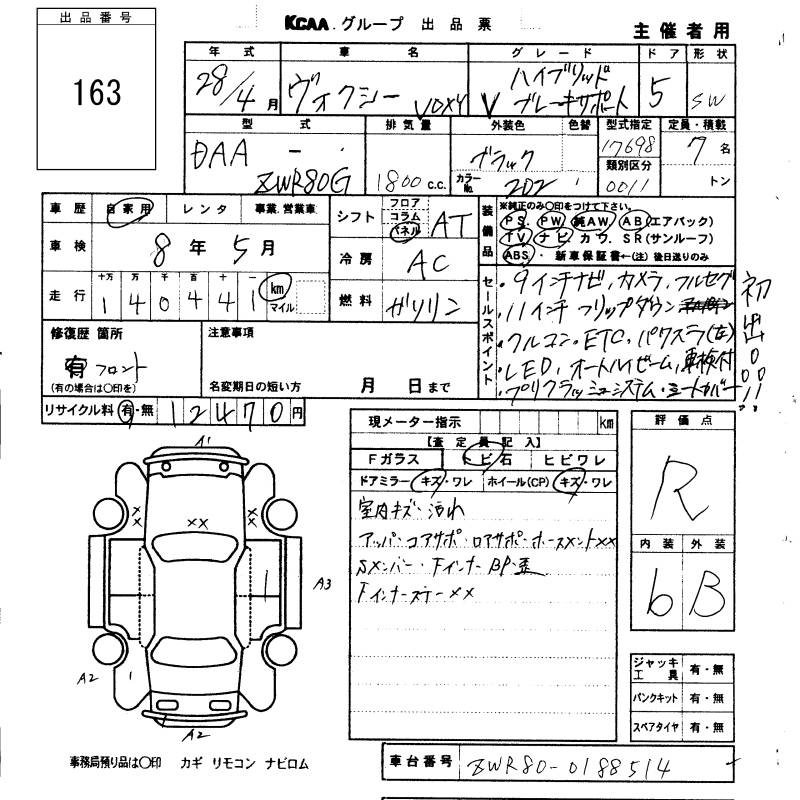 出品番号
163
KCAA グループ 出品票
主催者用
年式 車名 グレード ドア 形状
28/4月 ヴォクシー VOXY V ハイブリッド ブレーキサポート 5 SW
型式 排気量 外装色 色替 型式指定 定員・積載
DAA - ZWR80G 1800c.c. ブラック カラーNo. 202 17698 類別区分 0011 7名 トン
車歴 自家用 レンタ 事業.営業車
車検 8年5月
走行 十万 万 千 百 十 一 km マイル
1 4 0 4 4 1
シフト フロア コラム パネル AT
冷房 AC
燃料 ガソリン
装備品 ※純正のみ○印をつけて下さい。
PS. PW. 純AW. AB(エアバック)
TV. ナビ. カワ. SR(サンルーフ)
ABS. 新車保証書←(注)後日送りのみ
セールスポイント
・9インチナビ、カメラ、フルセグ
・11インチ フリップダウン
・フルコン・ETC、パワスラ(左)
・LED、オートハイビーム、車検付
・プリクラッシュシステム・シートカバー
初出!!
修復歴 箇所
有 フロント
(有の場合は○印を)
注意事項
名変期日の短い方 月 日まで
リサイクル料 有・無 12470円
現メーター指示 km
【査定員記入】
Fガラス トビ石 ヒビワレ
ドアミラー キズ・ワレ ホイール(CP) キズ・ワレ
室内キズ・汚れ
アッパ・コアサポ・ロアサポ・ホースメントXX
Sメンバー・FインナーBP・歪
FインナーステーXX
評価点
R
内装 外装
6 B
ジャッキ工具 有・無
パンクキット 有・無
スペアタイヤ 有・無
A1
XX
XX
XX
A3
A2
A2
事務局預り品は○印 カギ リモコン ナビロム
車台番号 ZWR80-0188514